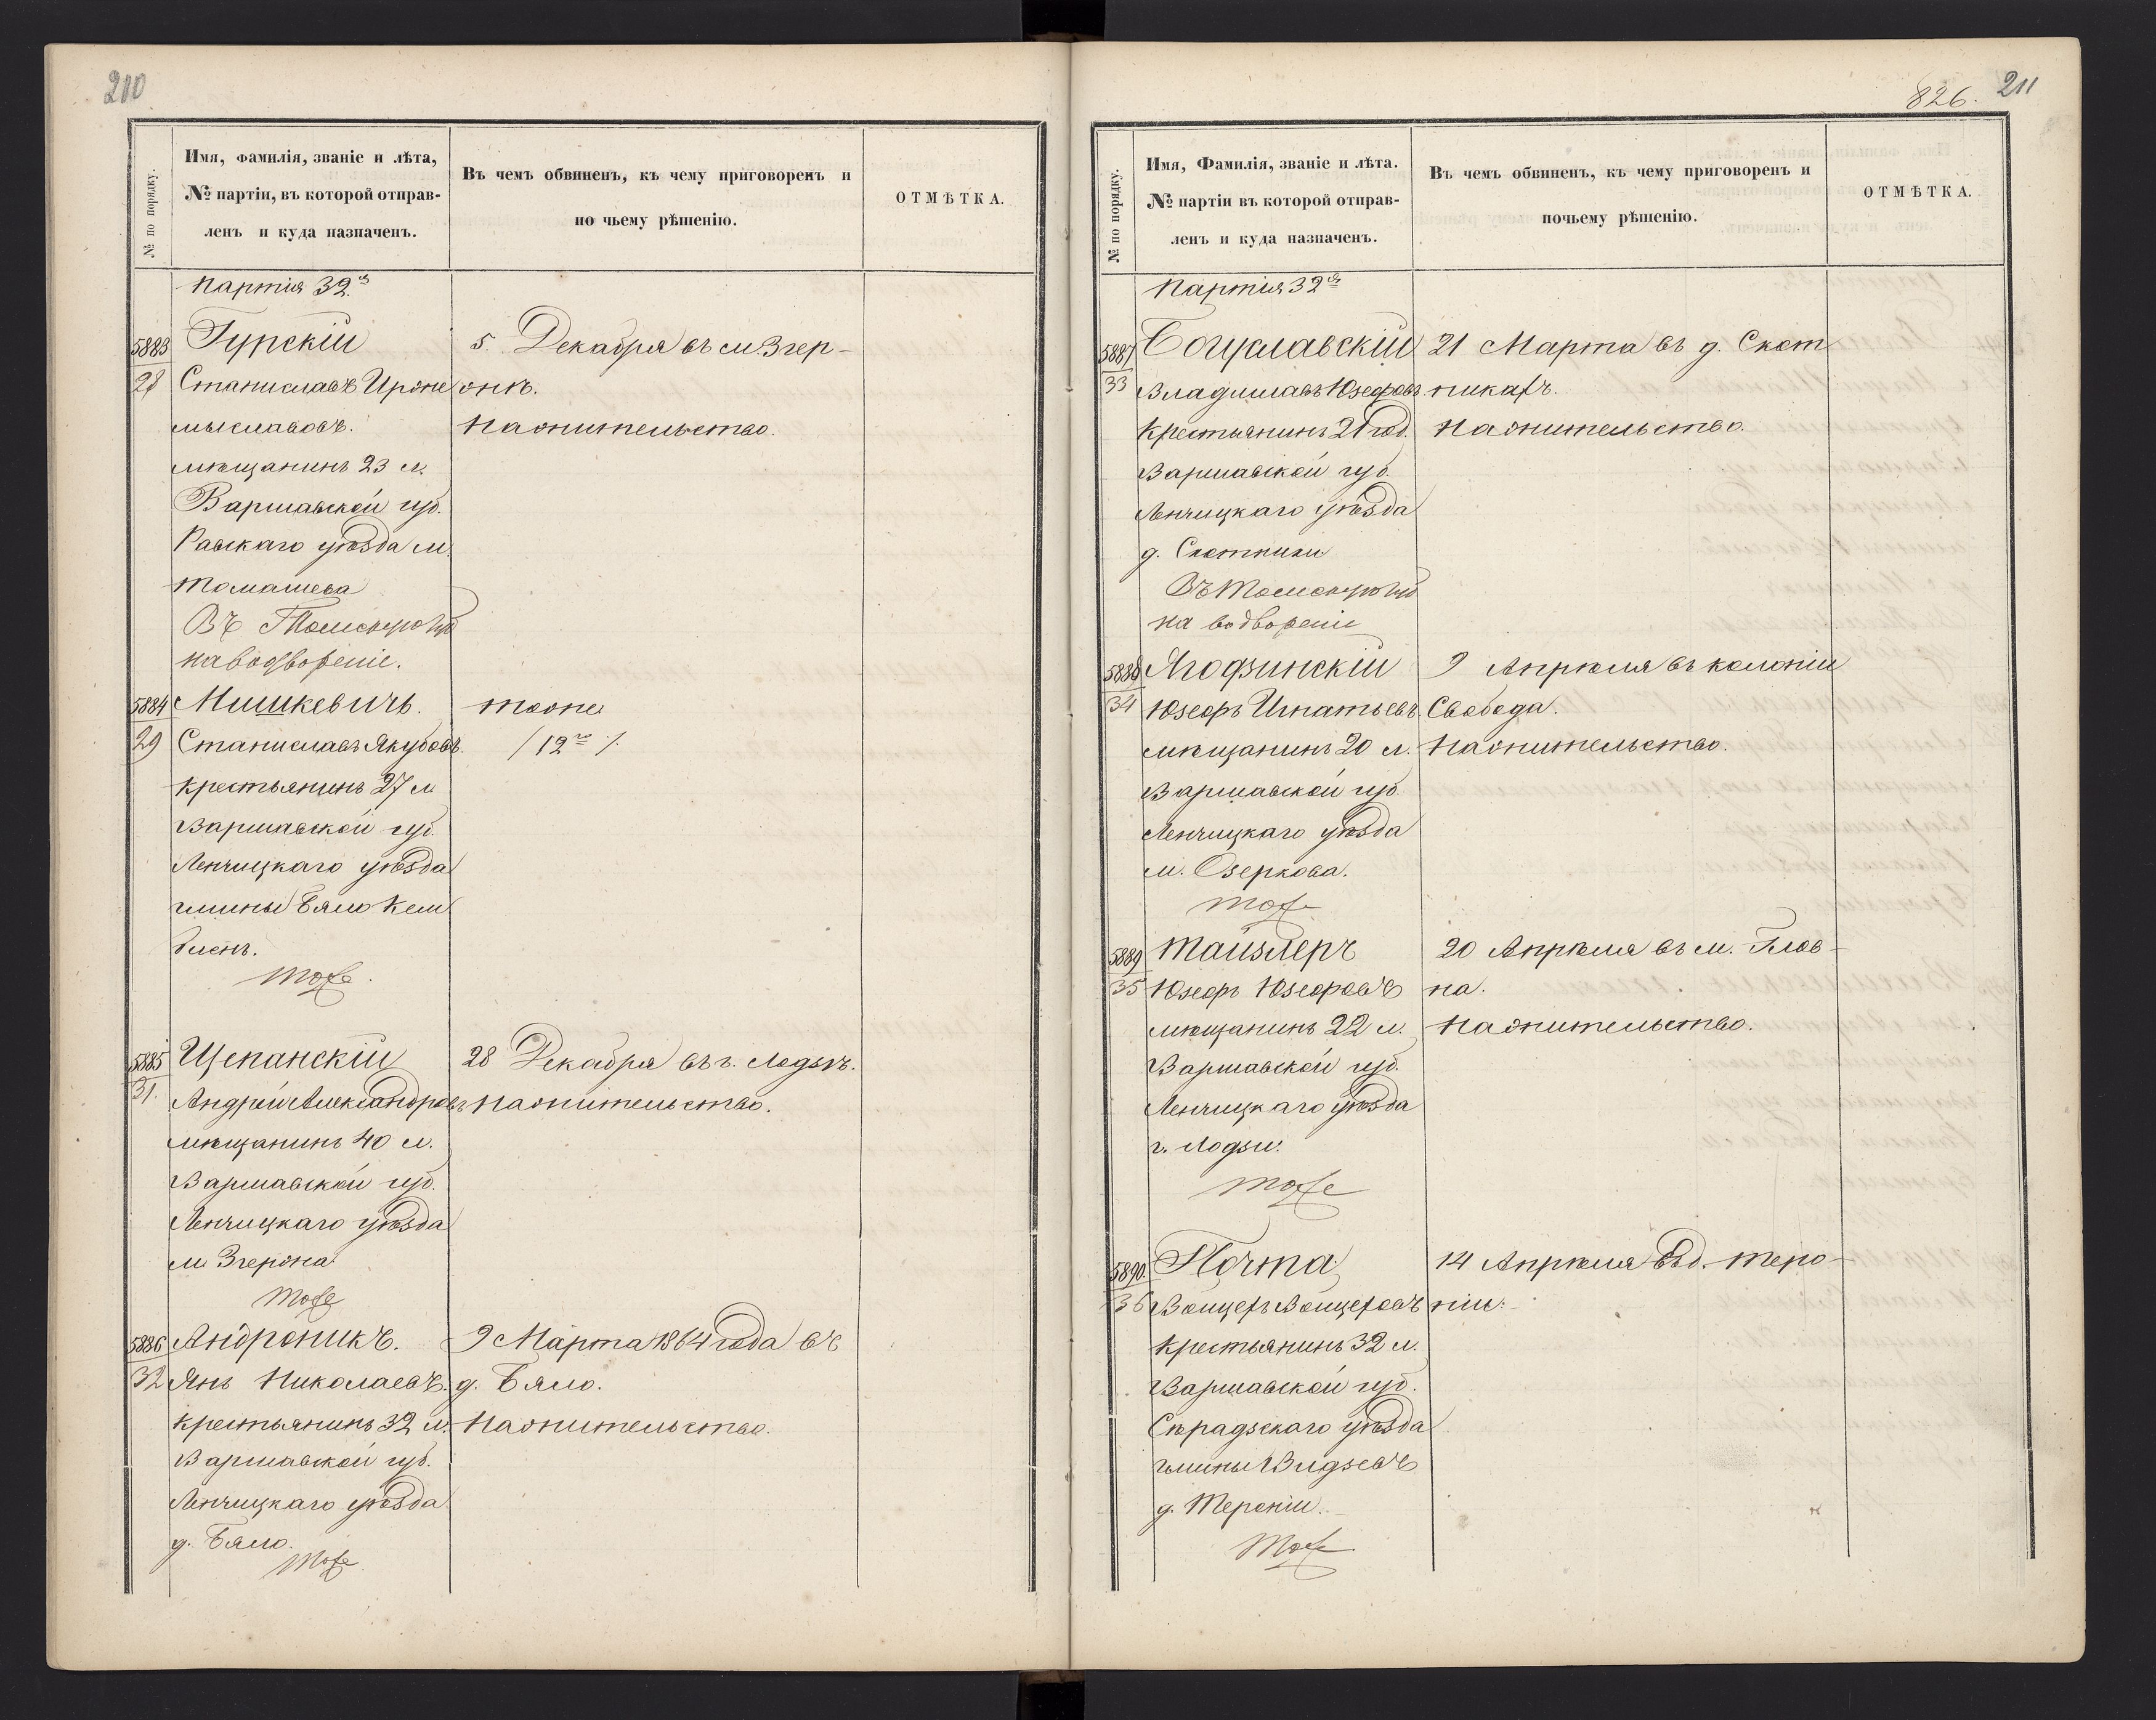 210
№ по порядку.
Имя, фамилія, званіе и лѣта,
№ партіи, въ которой отправ-
ленъ и куда назначенъ.
Въ чемъ обвиненъ, къ чему приговоренъ и
по чьему рѣшенію.
ОТМѢТКА.
партія 32.я
5883
28
Гурскій
Станиславъ
мыславовъ.
мѣщанинъ 23 л.
Варшавской губ.
Равскаго уѣзда м.
Томашева
Въ Томскую губ
на водвореніе.
5. Декабря въ м. Згер-
онѣ.
Наожительство.
5884
29
Мишкевичъ.
Станиславъ Якубовъ.
крестьянинъ 27 л
Варшавской губ.
Ленчицкаго уѣзда
гмины Бяло
тоже.
тоже
/12го/.
5885
31.
Щепанскій
Андрей Александровъ
мѣщанинъ 40 л.
Варшавской губ.
Ленчицкаго уѣзда
м. Згержа
тоже
28 Декабря въ г. Лодзѣ.
Наожительство.
5886
32
Андроникъ.
Янъ Николаевъ.
крестьянинъ 32 л.
Варшавской губ.
Ленчицкаго уѣзда
д. Бяло.
тоже
9 Марта 1864 года въ
д. Бяло.
Наожительство.
826. 211
№ по порядку.
Имя, Фамилія, званіе и лѣта.
№ партіи въ которой отправ-
ленъ и куда назначенъ.
Въ чемъ обвиненъ, къ чему приговоренъ и
почьему рѣшенію.
ОТМѢТКА.
партія 32я
5887
33
Богуславскій
Владиславъ Юзефовъ
крестьянинъ 21 год.
Варшавской губ.
Ленчицкаго уѣзда
д. Скотники
Въ Томскую губ
на водвореніе
21 Марта въ д. Скот
никахъ.
Наожительство.
5888
34
Ягодзинскій
Юзефъ Игнатьевъ.
мѣщанинъ 20 л.
Варшавской губ.
Ленчицкаго уѣзда
м. Озеркова.
тоже
9 Апрѣля въ колоніи
Свобода.
Наожительство.
5889
35
Тайзлеръ
Юзефъ Юзефовъ
мѣщанинъ 22 л.
Варшавской губ.
Ленчицкаго уѣзда
г. Лодзи.
тоже
20 Апрѣля въ м. Глов-
на.
Наожительство.
5890.
36
Почта
Войцехъ Войцеховъ
крестьянинъ 32 л.
Варшавской губ.
Сѣрадзскаго уѣзда
гмины Видзевъ
д. Тероніи.
тоже
14 Апрѣля въ д. Теро-
ніи.